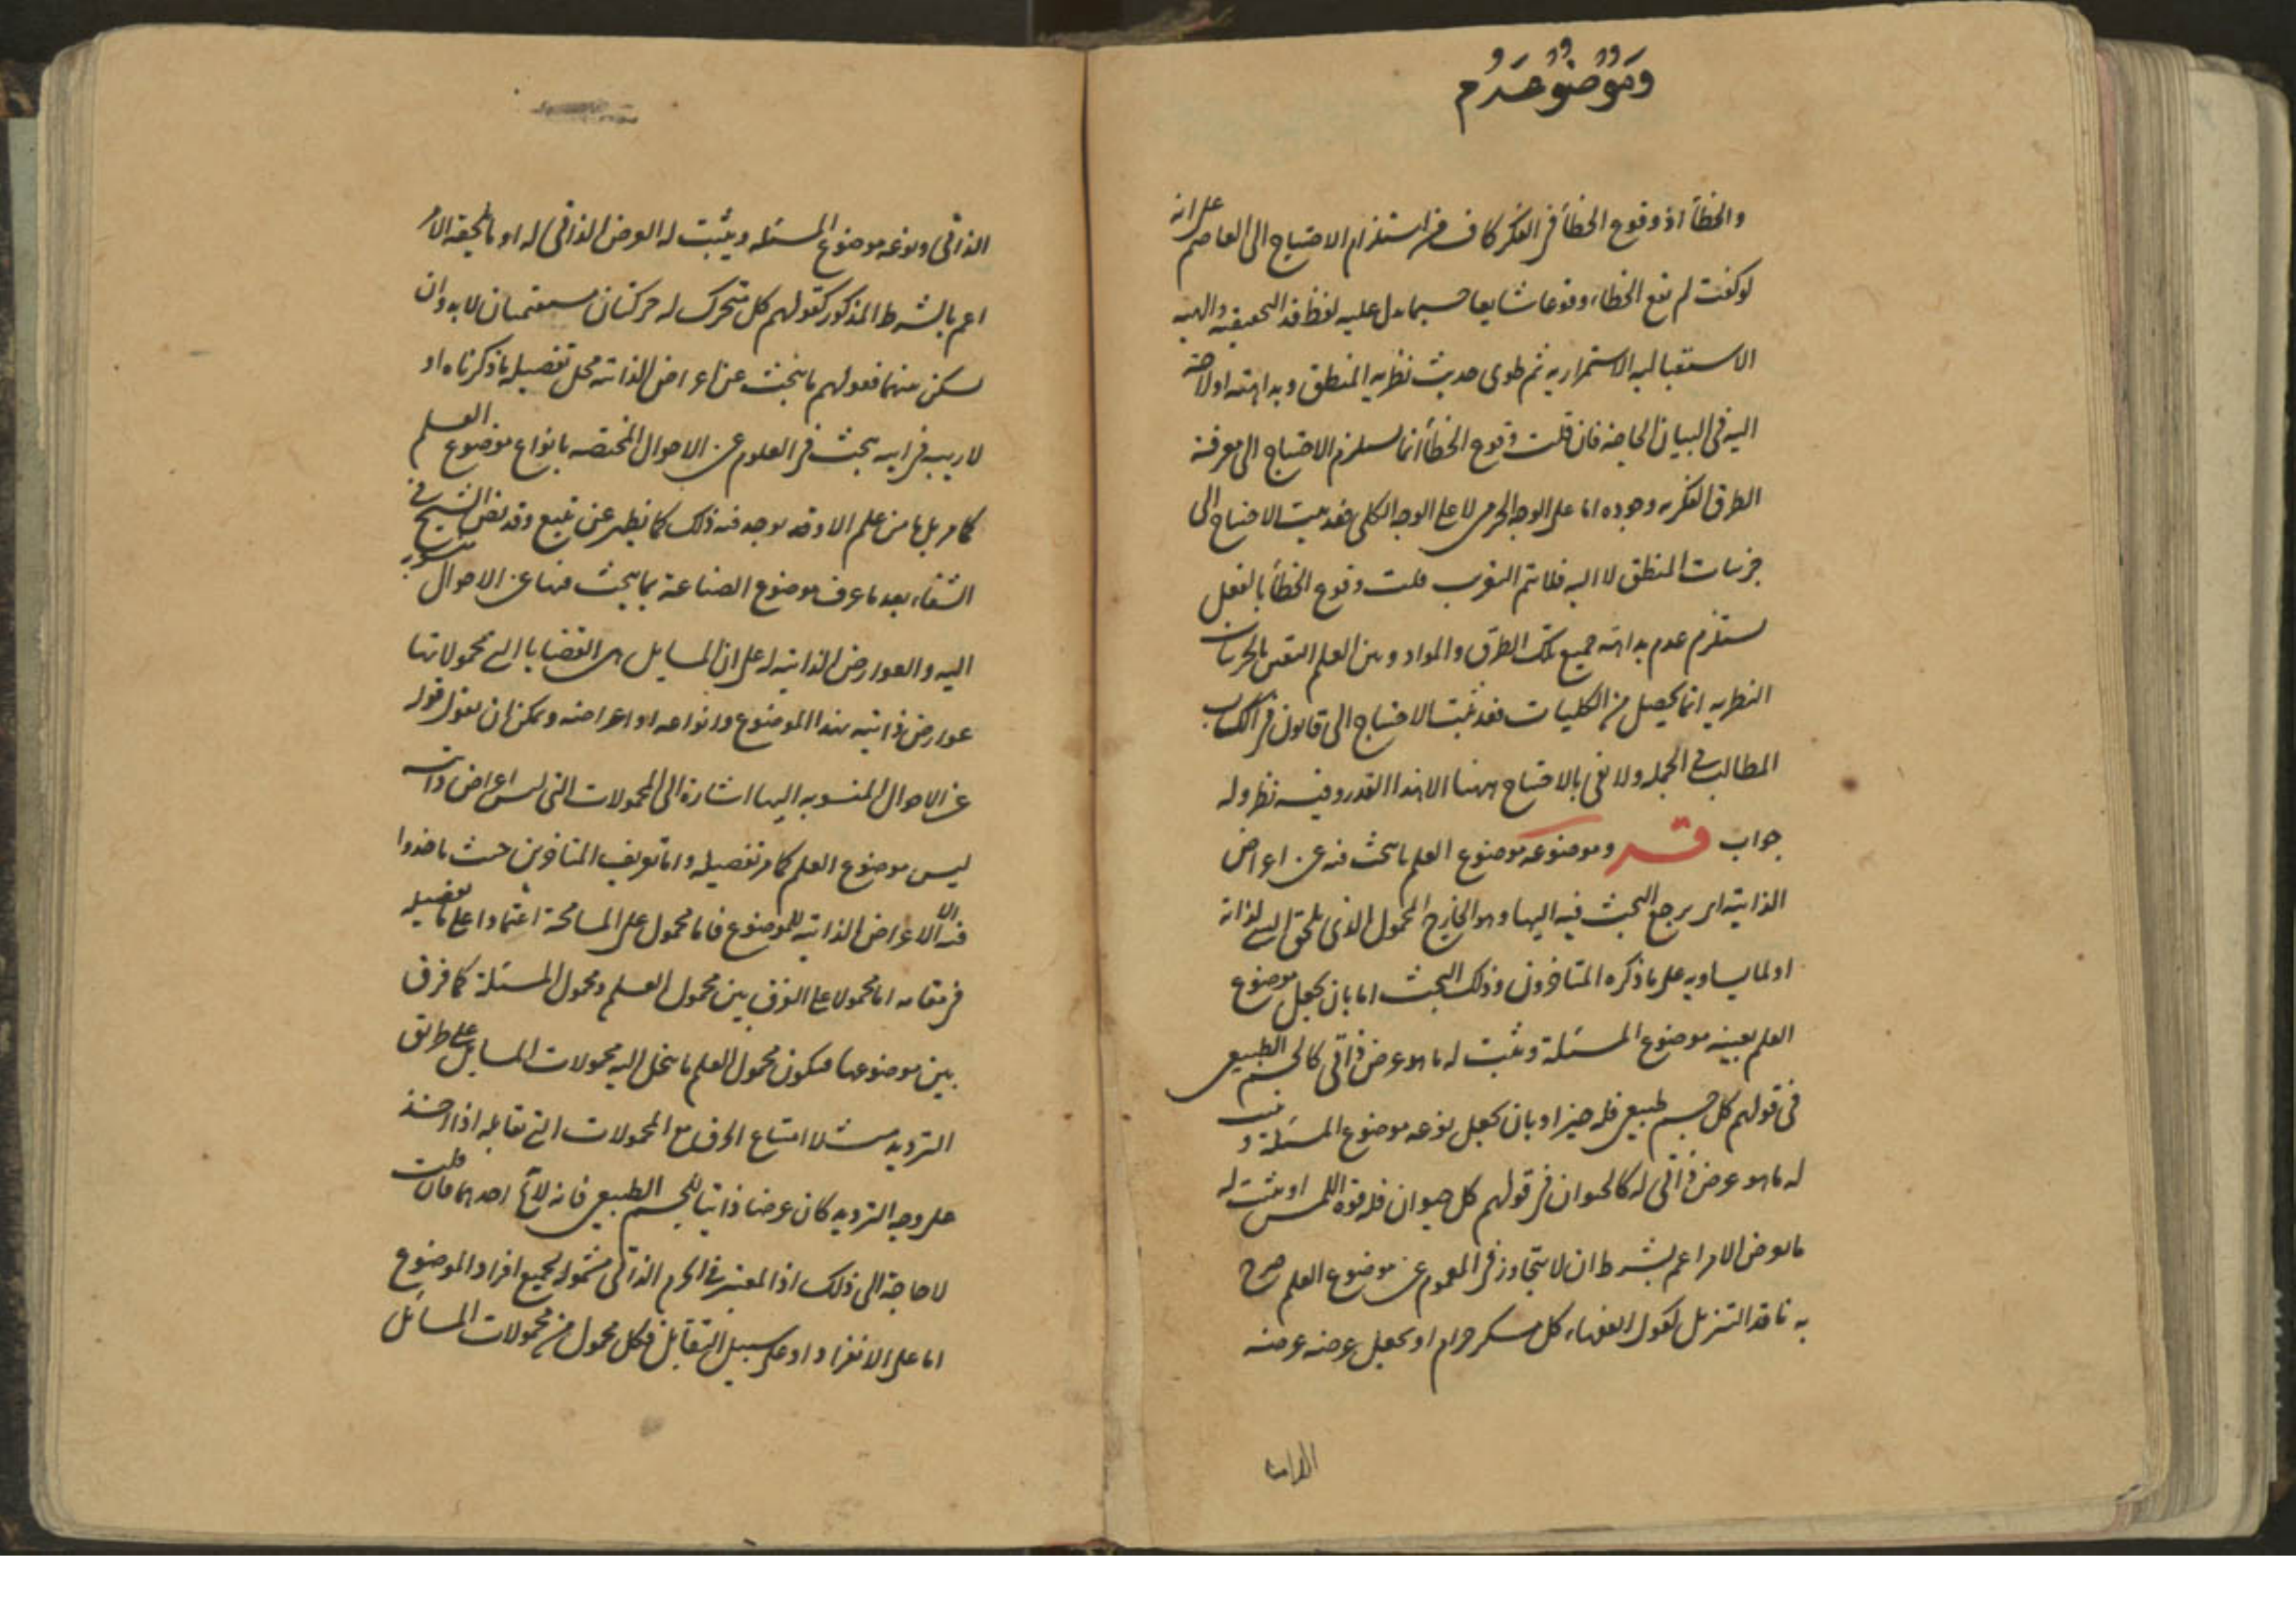 وموضوعه
والخطأ اذ وقوع الخطأ فى الفكر كاف فى استلزام الاحتياج الى العاصم على انه
لو كفت لم يقع الخطاء وقوعا شايعا حسبما يدل عليه لفظ قد التحقيقيه والهيه
الاستقباليه الاستمراريه ثم طوى حديث نظريه المنطق وبداهته اولا حاجة
اليه فى البيان الحاجة فان قلت وقوع الخطأ انما يستلزم الاحتياج الى معرفة
الطرق الفكريه وجوده اما على الوجه الجزئى لا على الوجه الكلى فقد يثبت الاحتياج الى
جزئيات المنطق لا اليه فلا يتم التقريب قلت وقوع الخطأ بالفعل
يستلزم عدم بداهته جميع تلك الطرق والمواد ومن العلم اليقين بالجزئيات
النظريه انما يحصل من الكليات فقد ثبت الاحتياج الى قانون فى اكتساب
المطالب فى الجمله ولا نعنى بالاحتياج ههنا الا هذا القدر وفيه نظر وله
جواب قــه وموضوعه موضوع العلم ما يبحث فيه عن اعراض
الذاتيه اى يرجع البحث فيه اليها وهو الخارج المحمول الذى يلحق الشى لذاته
او لما يساويه على ما ذكره المتاخرون وذلك البحث اما بان يجعل موضوع
العلم بعينه موضوع المسئلة ويثبت له ما هو عرض ذاتى كالجسم الطبيعى
فى قولهم كل جسم طبيعى فله حيز او بان يجعل نوعه موضوع المسئلة ويثبت
له ما هو عرض ذاتى له كالحيوان فى قولهم كل حيوان فله قوة اللمس او يثبت له
ما يعرض لامر اعم بشرط ان لا يتجاوز فى العموم عن موضوع العلم صرح
به ناقد التنزيل كقول الفقهاء كل مسكر حرام او يجعل عرضه عرضه
الذاتى ونوعه موضوع المسئله ويثبت له العرض الذاتى له او ما يلحقه لامر
اعم بالشرط المذكور كقولهم كل متحرك له حركتان مستقيمتان لا بد وان
يسكن بينهما فقولهم ما يبحث عن اعراض الذاتيه محل تفصيله ما ذكرناه او
لا ريب فى انه يبحث فى العلوم عن الاحوال المختصه بانواع موضوع العلم
كما مر بل ما من علم الا وقد يوجد فيه ذلك كما يظهر عن تتبع وقد نص الشيخ فى
الشفاء بعد ما عرف موضوع الصناعة بما يبحث فيها عن الاحوال المنسوبه
اليه والعوارض الذاتيه له على ان المسايل هى القضايا التى محمولاتها
عوارض ذاتيه لهذا الموضوع او لانواعه او اعراضه ويمكن ان يقول قوله
عن الاحوال المنسوبه اليها اشارة الى المحمولات التى ليس اعراض ذاتيه
ليس موضوع العلم كما مر تفصيله واما تعريف المتاخرين حيث ما خذوا
فيه الاعراض الذاتيه للموضوع فاما محمول على المسامحة اعتمادا على تفصيله
فى مقامه اما محمولا على الفرق بين محمول العلم ومحمول المسئلة كما فرق
بين موضوعهما فيكون محمول العلم ما ينحل اليه محمولات المسايل على طريق
الترديد مثلا امتناع الخرق مع المحمولات التى تقابله اذا اخذ
على وجه الترديد كان عرضا ذاتيا للجسم الطبيعى فانه لا يخ احدهما فان قلت
لا حاجة الى ذلك اذ المعتبر فى العرض الذاتى شموله لجميع افراد الموضوع
اما على الانفراد او على سبيل التقابل فكل محمول من محمولات المسائل